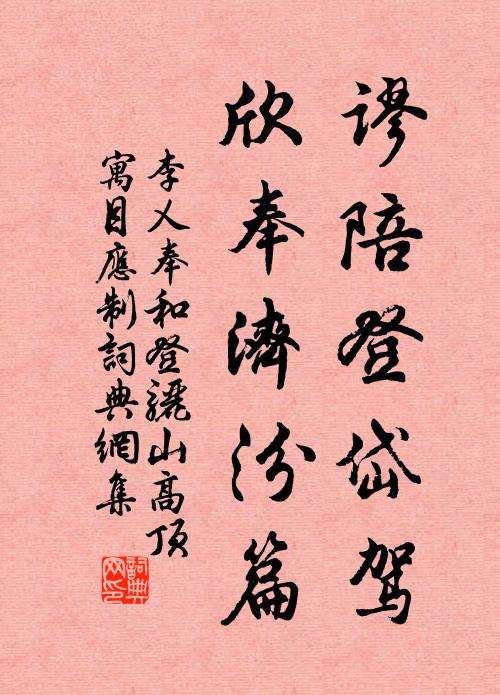 謬陪登岱駕
欣奉濟汾篇
李乂奉和登驪山高頂
寓目應制詞典網集
詞典网印